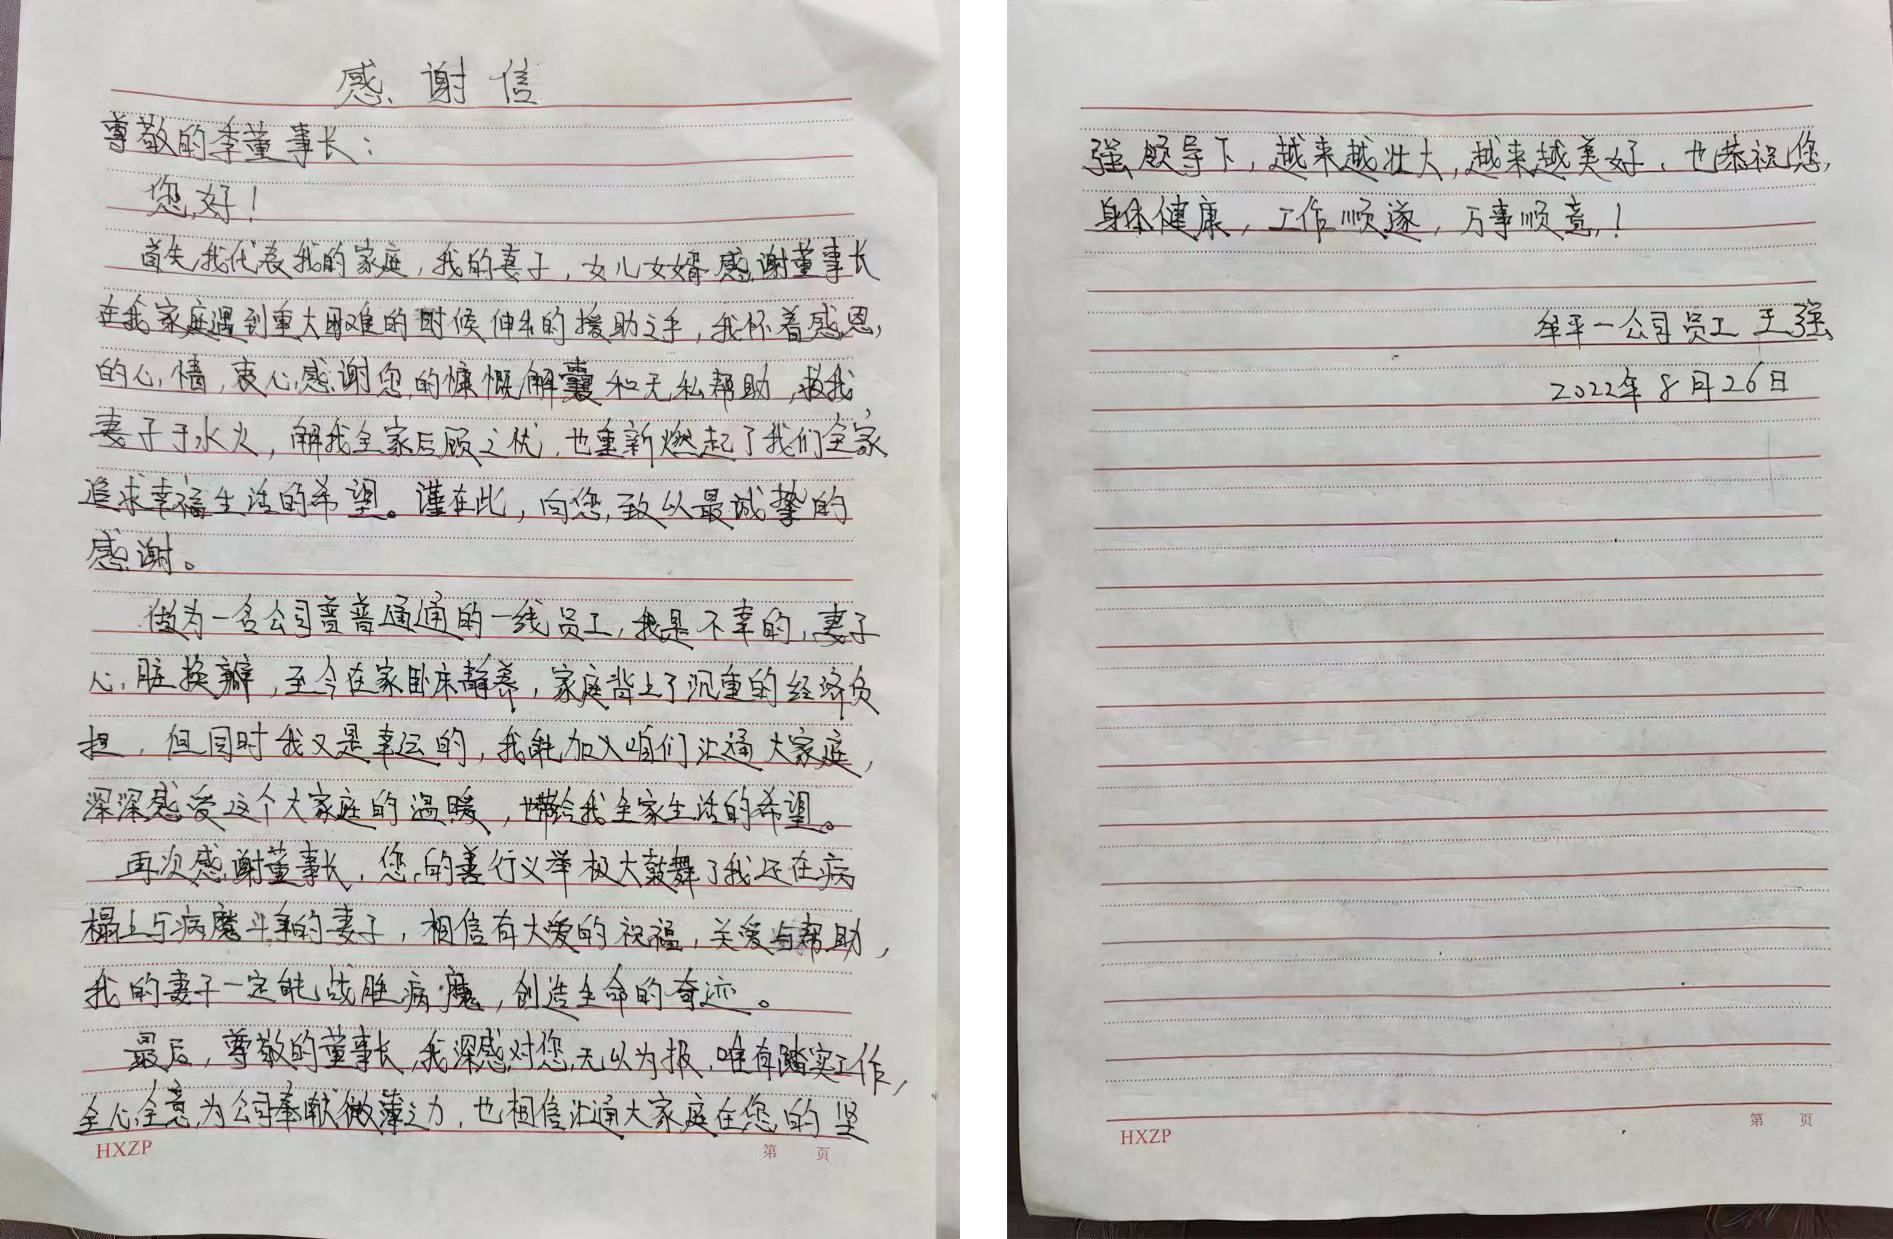 感谢信
尊敬的李董事长：
您好！
首先我代表我的家庭，我的妻子，女儿女婿感谢董事长
在我家庭遇到重大困难的时候伸出的援助之手，我怀着感恩
的心情，衷心感谢您的慷慨解囊和无私帮助，救我
妻子于水火，解我全家后顾之忧，也重新燃起了我们全家
追求幸福生活的希望。谨在此，向您致以最诚挚的
感谢。
做为一名公司普普通通的一线员工，我是不幸的，妻子
心脏换瓣，至今在家卧床静养，家庭背上了沉重的经济负
担，但同时我又是幸运的，我能加入咱们汇通大家庭，
深深感受这个大家庭的温暖，也带给我全家生活的希望。
再次感谢董事长，您的善行义举极大鼓舞了我还在病
榻上与病魔斗争的妻子，相信有大爱的祝福，关爱与帮助，
我的妻子一定能战胜病魔，创造生命的奇迹。
最后，尊敬的董事长，我深感对您无以为报，唯有踏实工作，
全心全意为公司奉献微薄之力，也相信汇通大家庭在您的坚
HXZP
第 页
强领导下，越来越壮大，越来越美好，也恭祝您，
身体健康，工作顺遂，万事顺意！
牟平一公司员工 王强
2022年8月26日
HXZP
第 页